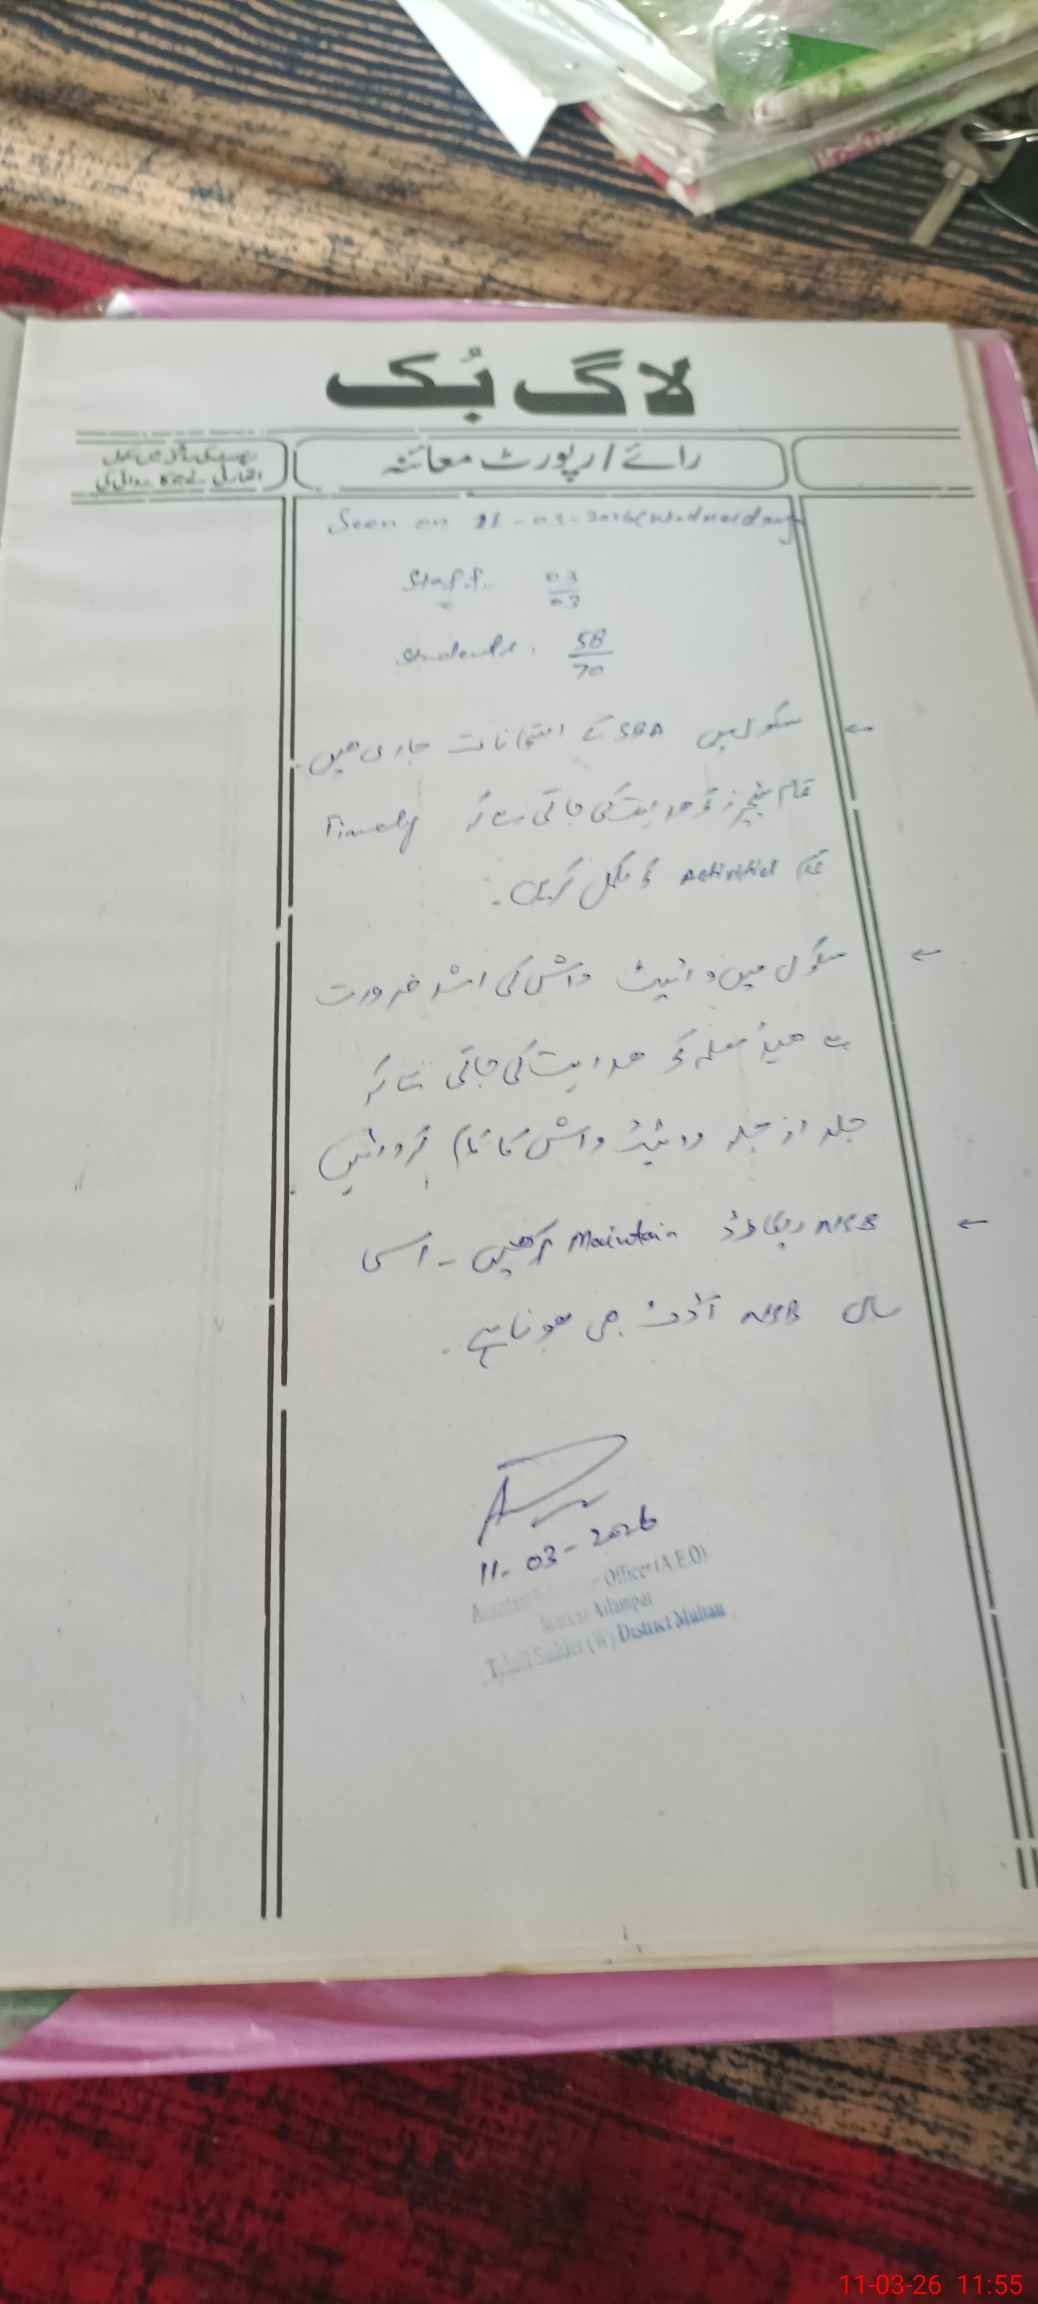 لاگ بُک
رائے / رپورٹ معائنہ
Seen on 11-03-2026 (Wednesday)
Staff. 03/03
Students. 58/70
← سکول میں SBA کے امتحانات جاری ھیں۔
تمام ٹیچرز کو ھدایت کی جاتی ہے کہ Timely
تمام Activities کو مکمل کریں۔
← سکول میں وائیٹ واش کی اشد ضرورت
ہے ھیڈ معلمہ کو ھدایت کی جاتی ہے کہ
جلد از جلد وائیٹ واش کا کام کروائیں
← NSB ریکارڈ Maintain رکھیں - اسی
سال NSB آڈٹ بھی ھونا ہے۔
11-03-2026
Officer (A.E.O)
Tehsil Sadder (W) District Multan
11-03-26 11:55